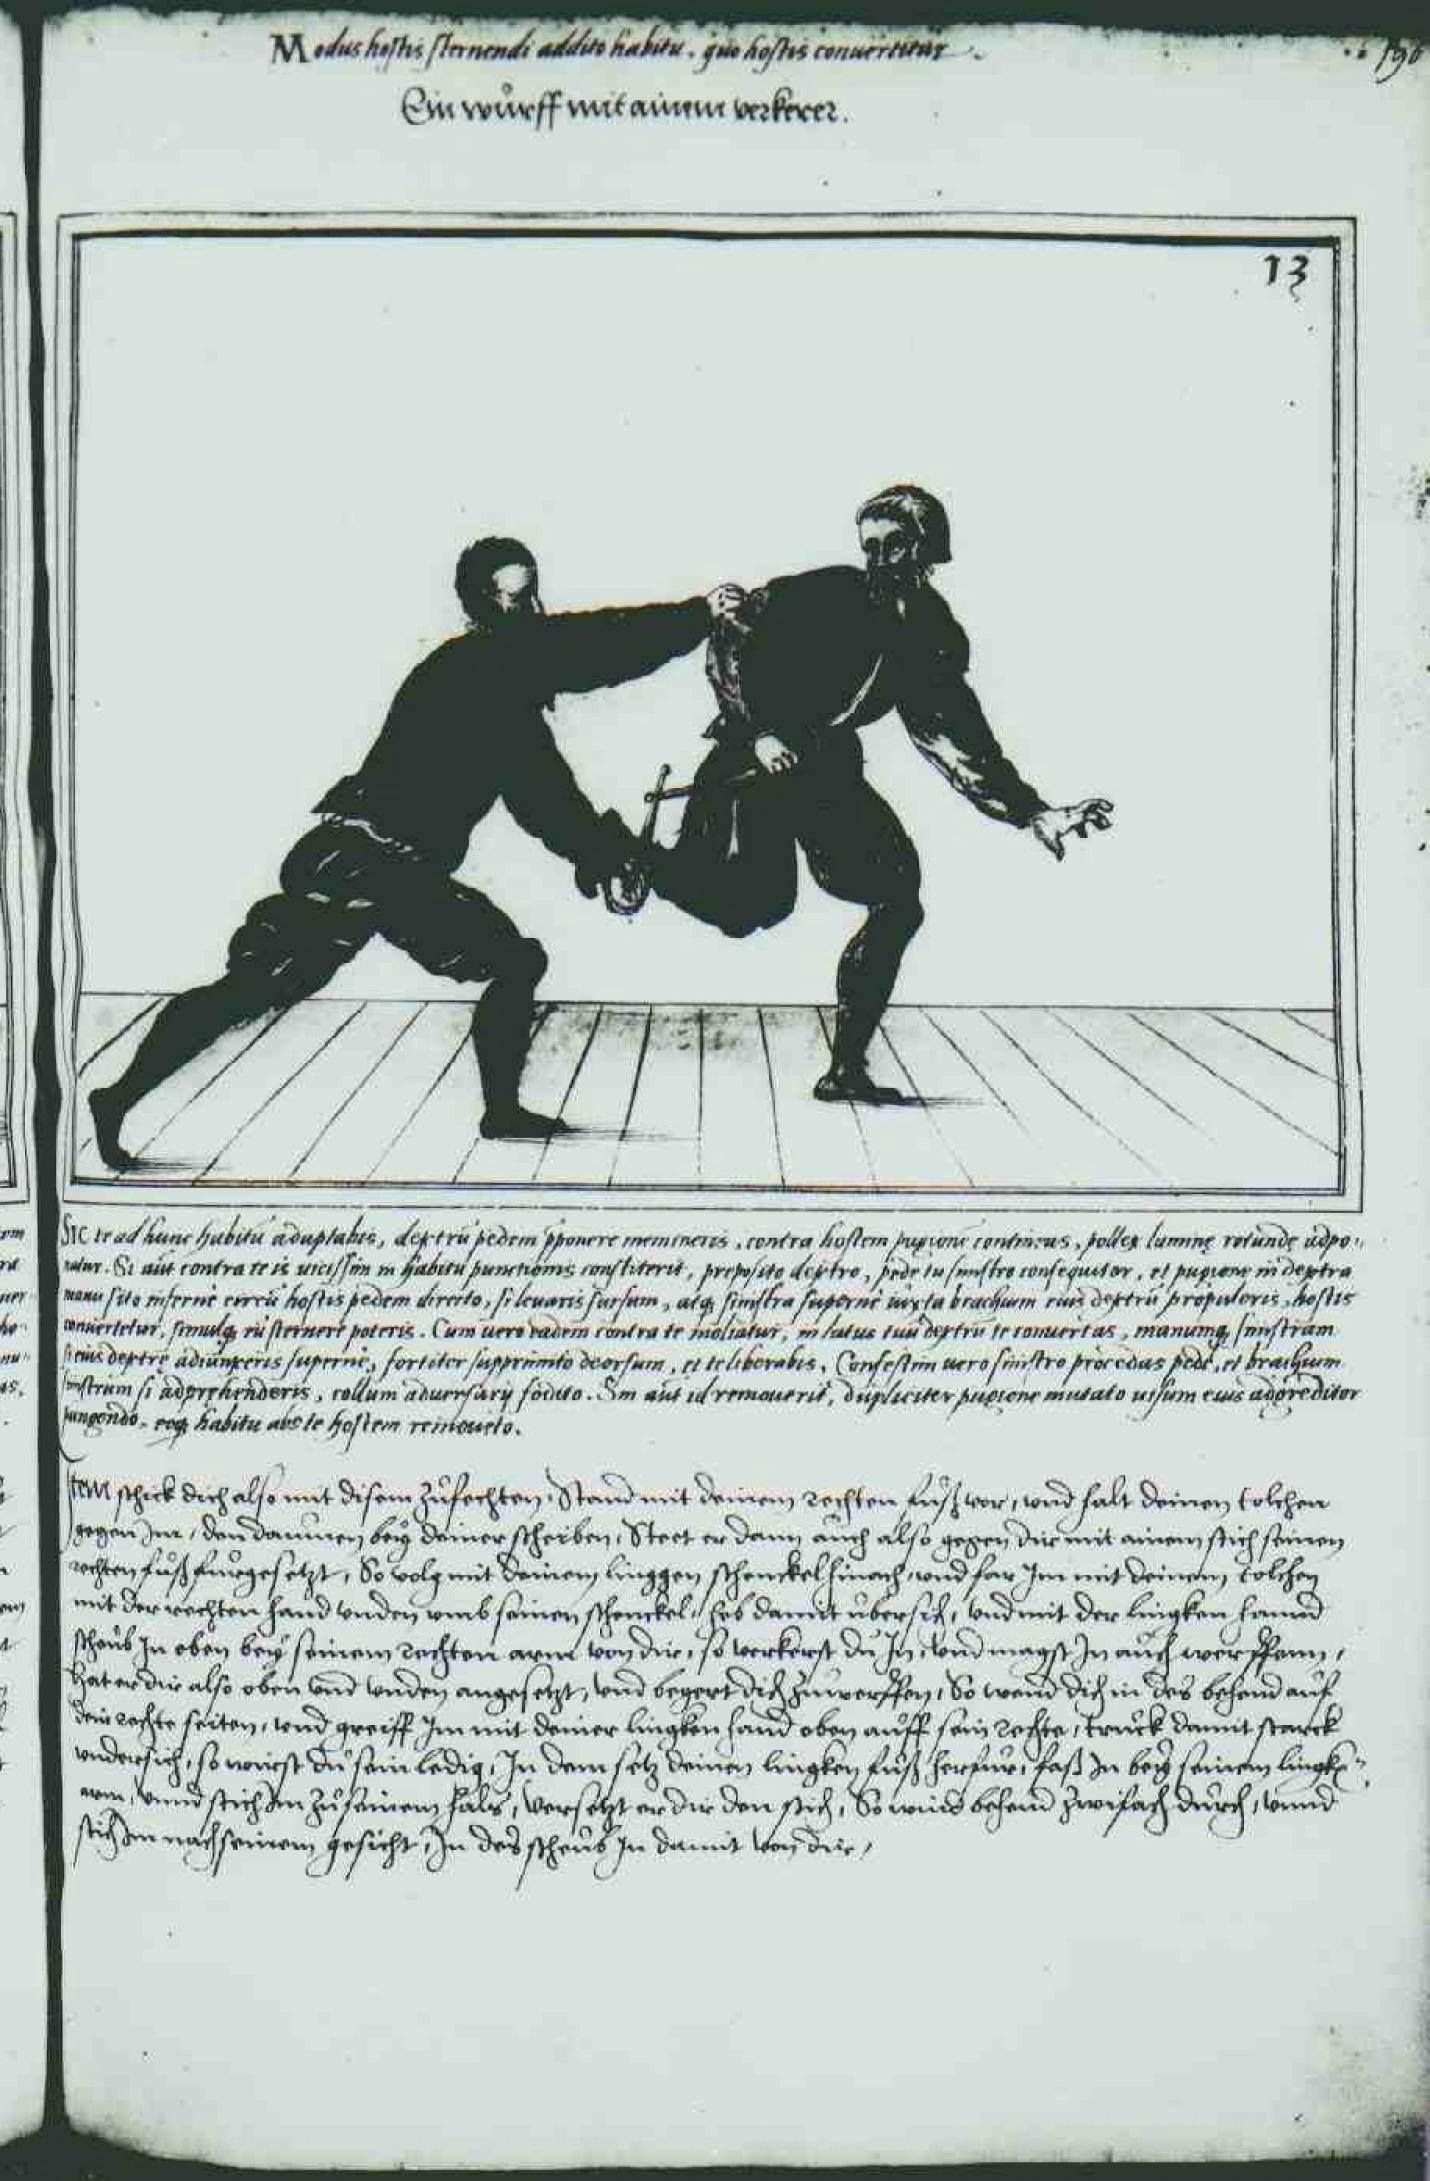 Modus hostis sternendi addito habitu, quo hostis convertitur.
196
Ein wůrff mit ainem verkerer.
13
Sic te ad hunc habitū aduptabis, dextrū pedem pponere memineris, contra hostem pugionē continens, pollex laminę rotundę adpo-
natur. Si aūt contra te is vicissim in habitu punctionis constiterit, preposito dextro, pede tu sinistro consequitor, et pugione in dextra
manu sito infernè circū hostis pedem directo, si levaris sursum, atq; sinistra supernè iuxta brachium eius dextrū propuleris, hostis
convertetur, simulq; eū sternere poteris. Cum vero eadem contra te moliatur, in latus tuū dextrū te convertas, manumq; sinistram
si eius dextrę adiunxeris supernè, fortiter supprimito deorsum, et te liberabis. Confestim vero sinistro procedas pede, et brachium
sinistrum si adprehenderis, collum adversarij fodito. Sin aūt id removerit, dupliciter pugione mutato visum eius adgreditor
pungendo, eoq; habitu abs te hostem removeto.
Item schick dich also mit disem zůfechten, Stand mit deinem rechten fůß vor, vnd halt deinen tolchen
gegen Im, den daumen bey deiner scheiben, Steet er dann auch also gegen dir mit ainem stich seinen
rechten fůß fürgesetzt, So volg mit deinem linggen schenckel hinach, vnd far Im mit deinem tolchen
mit der rechten hand vnden vmb seinen schenckel, heb damit übersich, vnd mit der lingken hannd
scheub In oben bey seinem rechten arm von dir, so verkerst du In, vnd magst In auch werffenn,
Hat er dir also oben vnd vnden angesetzt, vnd begert dich zůwerffen, So wend dich in des behend auf
dein rechte seiten, vnd greiff Im mit deiner lingken hand oben auff sein rechte, truck damit starck
vndersich, so wirst du sein ledig, In dem setz deinen lingken fůß herfur, faß In bey seinem lingkē
arm, vnnd stich Im zů seinem hals, Versetzt er dir den stich, So wind behend zwifach durch, vnnd
stich Im nach seinem gesicht, In des scheub In damit von dir,